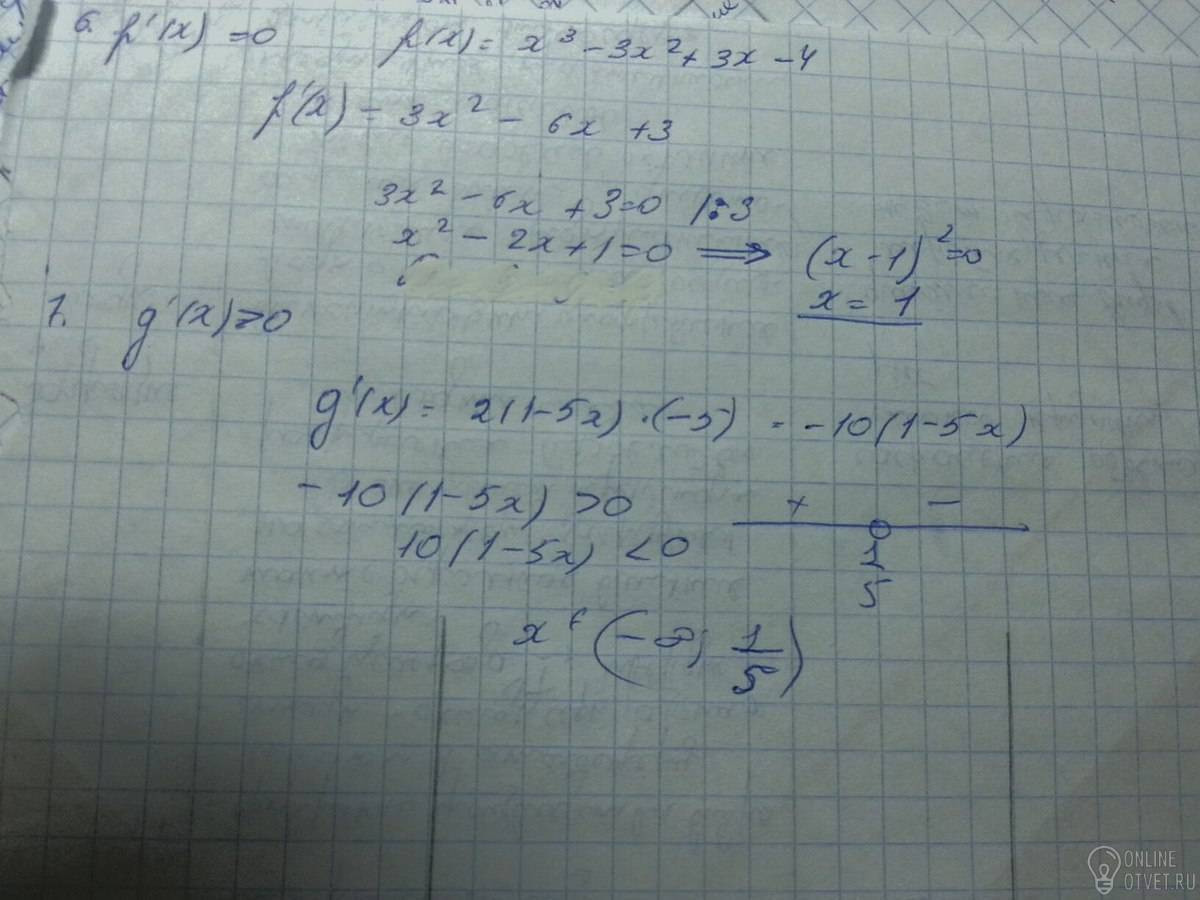 6. f'(x) = 0 f(x) = x³ - 3x² + 3x - 4
f'(x) = 3x² - 6x + 3
3x² - 6x + 3 = 0 |:3
x² - 2x + 1 = 0 ⟹ (x - 1)² = 0
x = 1
7. g'(x) > 0
g'(x) = 2(1-5x)·(-5) = -10(1-5x)
-10(1-5x) > 0 + -
10(1-5x) < 0 1/5
x ∈ (-∞; 1/5)
ONLINE
OTVET.RU